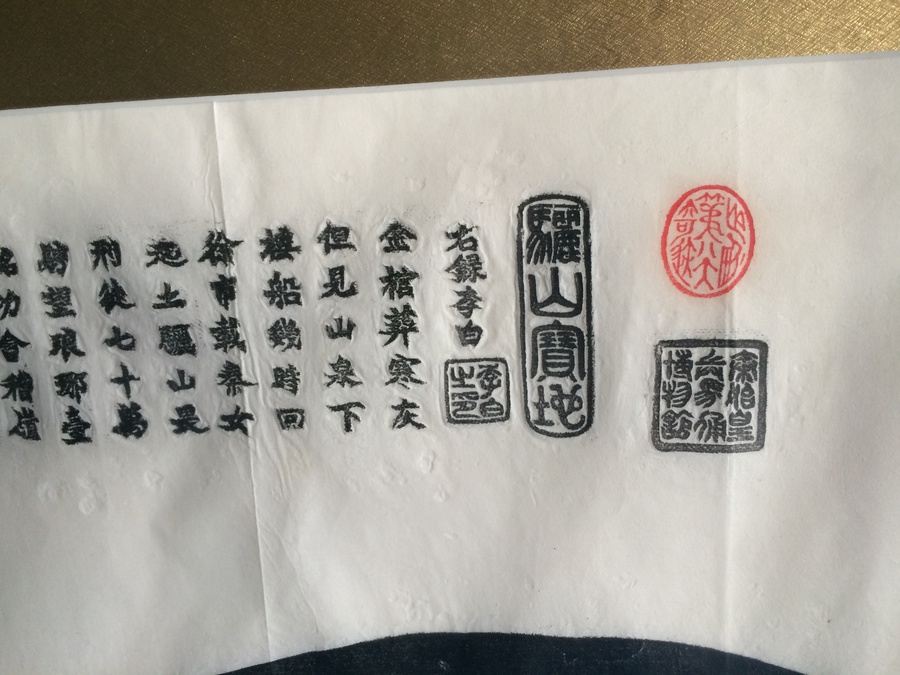 銘功會稽嶺
騁望琅耶臺
刑徒七十萬
起土驪山畏
徐市載秦女
樓船幾時回
但見山泉下
金棺葬寒灰
右錄李白
李白之印
驪山寶地
世界第八大奇跡
秦始皇兵馬俑博物館